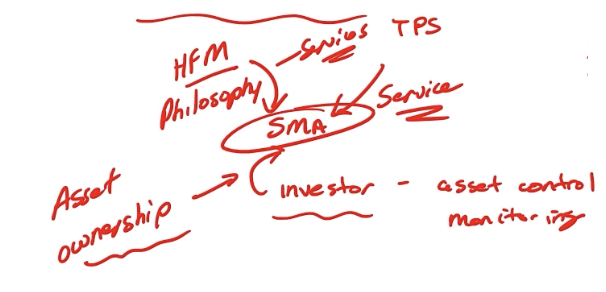 HFM
Philosophy
Servies
TPS
Service
SMA
Asset
ownership
investor - asset control
monitoring